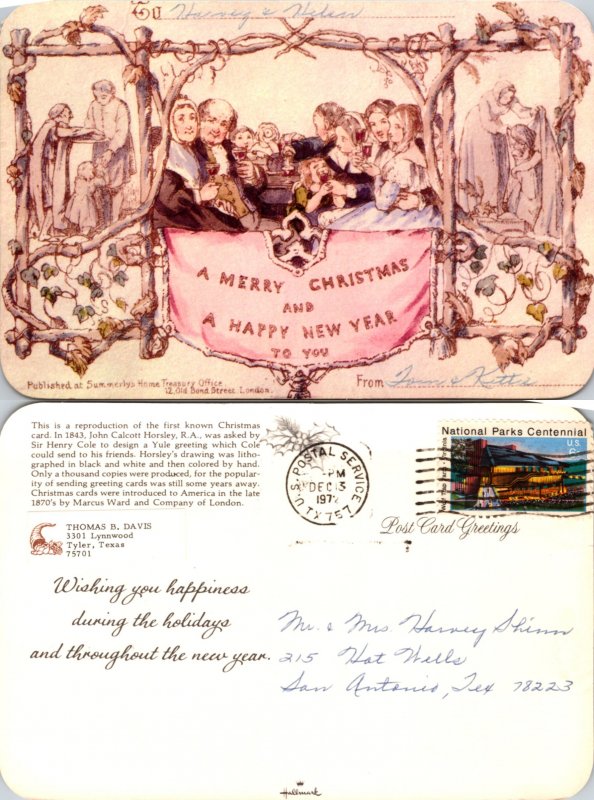 To Harvey & Helen
A MERRY CHRISTMAS
AND
A HAPPY NEW YEAR
TO YOU
Published at Summerly's Home Treasury Office
12, Old Bond Street London.
From Tom & Kitts
This is a reproduction of the first known Christmas
card. In 1843, John Calcott Horsley, R.A., was asked by
Sir Henry Cole to design a Yule greeting which Cole
could send to his friends. Horsley's drawing was litho-
graphed in black and white and then colored by hand.
Only a thousand copies were produced, for the popular-
ity of sending greeting cards was still some years away.
Christmas cards were introduced to America in the late
1870's by Marcus Ward and Company of London.
THOMAS B. DAVIS
3301 Lynnwood
Tyler, Texas
75701
U.S. POSTAL SERVICE
PM
DEC 13
1972
TX 757
National Parks Centennial
U.S.
Post Card Greetings
Wishing you happiness
during the holidays
and throughout the new year.
Mr. & Mrs. Harvey Shinn
215 Hot Wells
San Antonio, Tex 78223
Hallmark